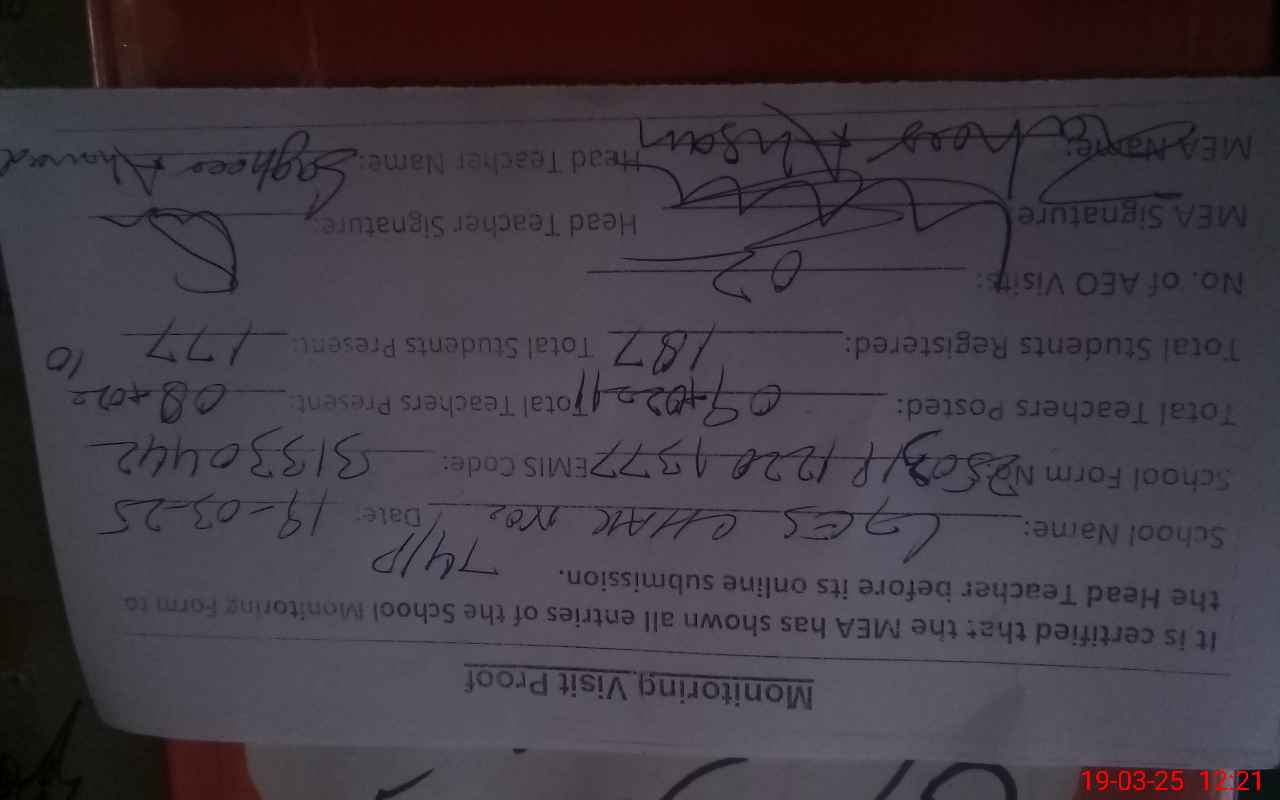 Monitoring Visit Proof
It is certified that the MEA has shown all entries of the School Monitoring Form to
the Head Teacher before its online submission.
74/P
School Name: GES CHAK NO. Date: 19-03-25
School Form No EMIS Code: 31330442
Total Teachers Posted: 09+02=11 Total Teachers Present: 08+02=
10
Total Students Registered: 187 Total Students Present: 177
No. of AEO Visits: 02
MEA Signature Head Teacher Signature:
MEA Name: Ahsan Head Teacher Name: Sagheer Ahmed
19-03-25 12:21